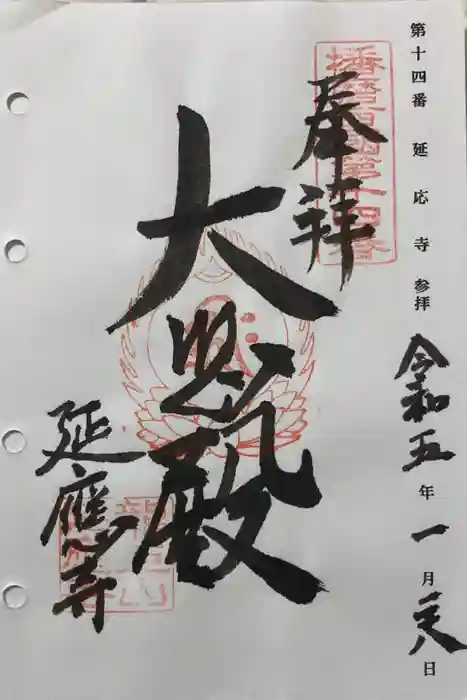 第十四番 延応寺 参拝 令和五年一月二八日
播磨西國第十四番
奉拝
大悲殿
延應寺